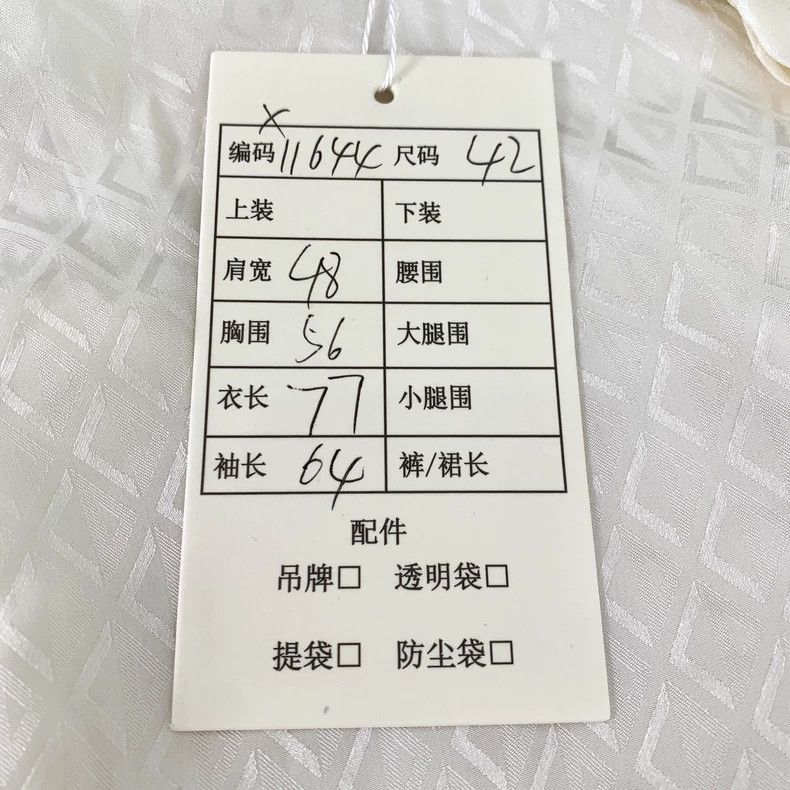 X
编码 11644 尺码 42
上装 下装
肩宽 48 腰围
胸围 56 大腿围
衣长 77 小腿围
袖长 64 裤/裙长
配件
吊牌□ 透明袋□
提袋□ 防尘袋□